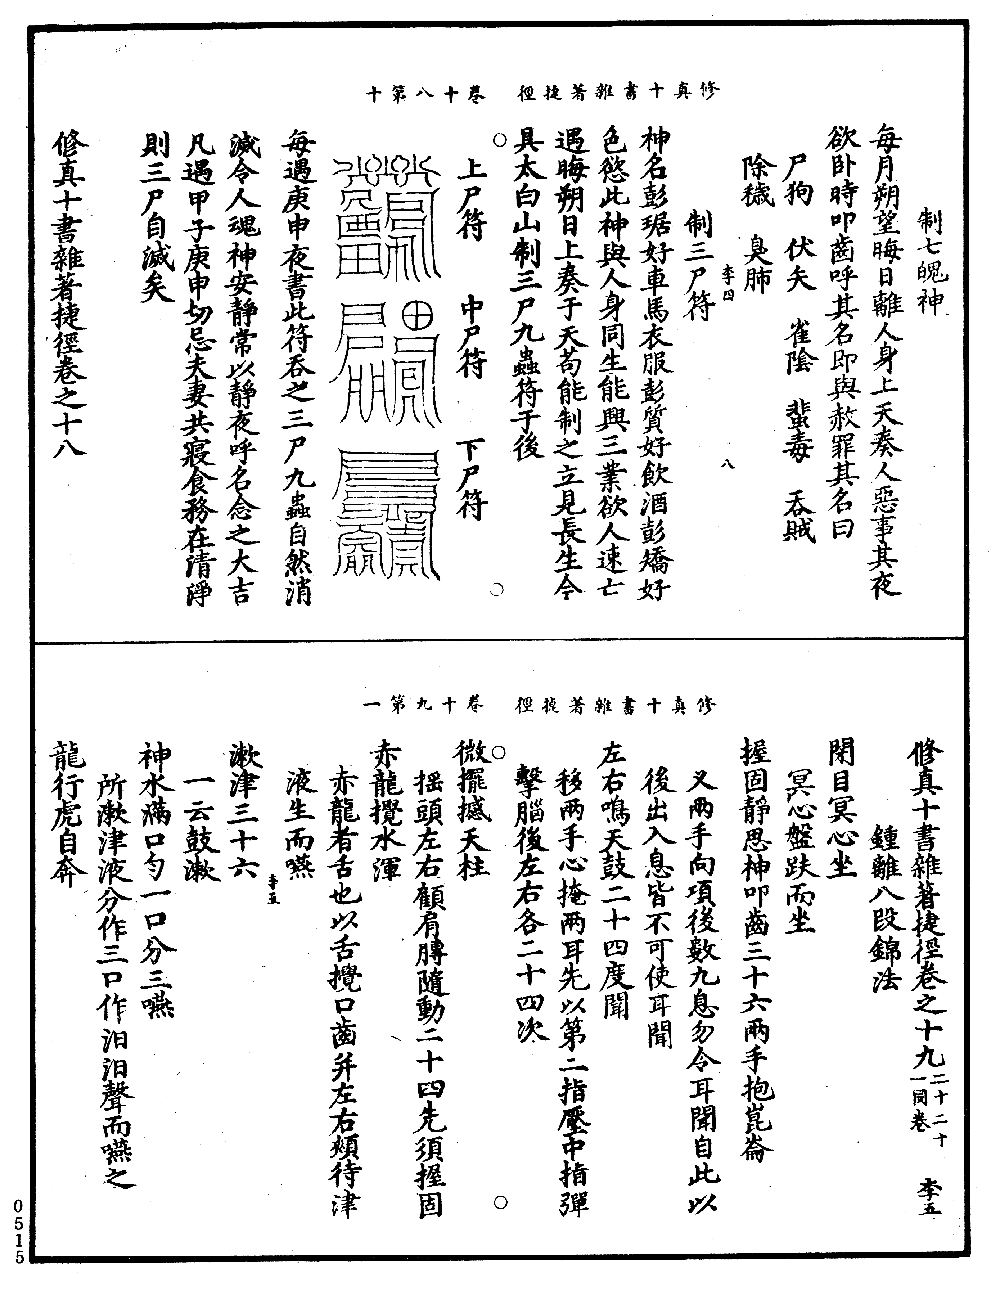 修真十書雜著捷徑　卷十八第十
制七魄神
每月朔望晦日離人身上天奏人惡事其夜
欲卧時叩齒呼其名即與赦罪其名曰
尸狗　伏矢　雀陰　蜚毒　吞賊
除穢　臭肺
李四　八
制三尸符
神名彭琚好車馬衣服彭質好飲酒彭矯好
色慾此神與人身同生能興三業欲人速亡
遇晦朔日上奏于天苟能制之立見長生今
具太白山制三尸九蟲符于後
上尸符　中尸符　下尸符
每遇庚申夜書此符吞之三尸九蟲自然消
滅令人魂神安靜常以靜夜呼名念之大吉
凡遇甲子庚申切忌夫妻共寢食務在清淨
則三尸自滅矣
修真十書雜著捷徑卷之十八
修真十書雜著捷徑　卷十九第一
修真十書雜著捷徑卷之十九二十二十一同卷　李五
鍾離八段錦法
閉目冥心坐
冥心盤趺而坐
握固靜思神叩齒三十六兩手抱崑崙
又兩手向項後數九息勿令耳聞自此以
後出入息皆不可使耳聞
左右鳴天鼓二十四度聞
移兩手心掩兩耳先以第二指壓中指彈
擊腦後左右各二十四次
微擺撼天柱
摇頭左右顧肩膊隨動二十四先須握固
赤龍攪水渾
赤龍者舌也以舌攪口齒并左右頰待津
液生而嚥
李五
漱津三十六
一云鼓漱
神水滿口勻一口分三嚥
所漱津液分作三口作汩汩聲而嚥之
龍行虎自奔
0515